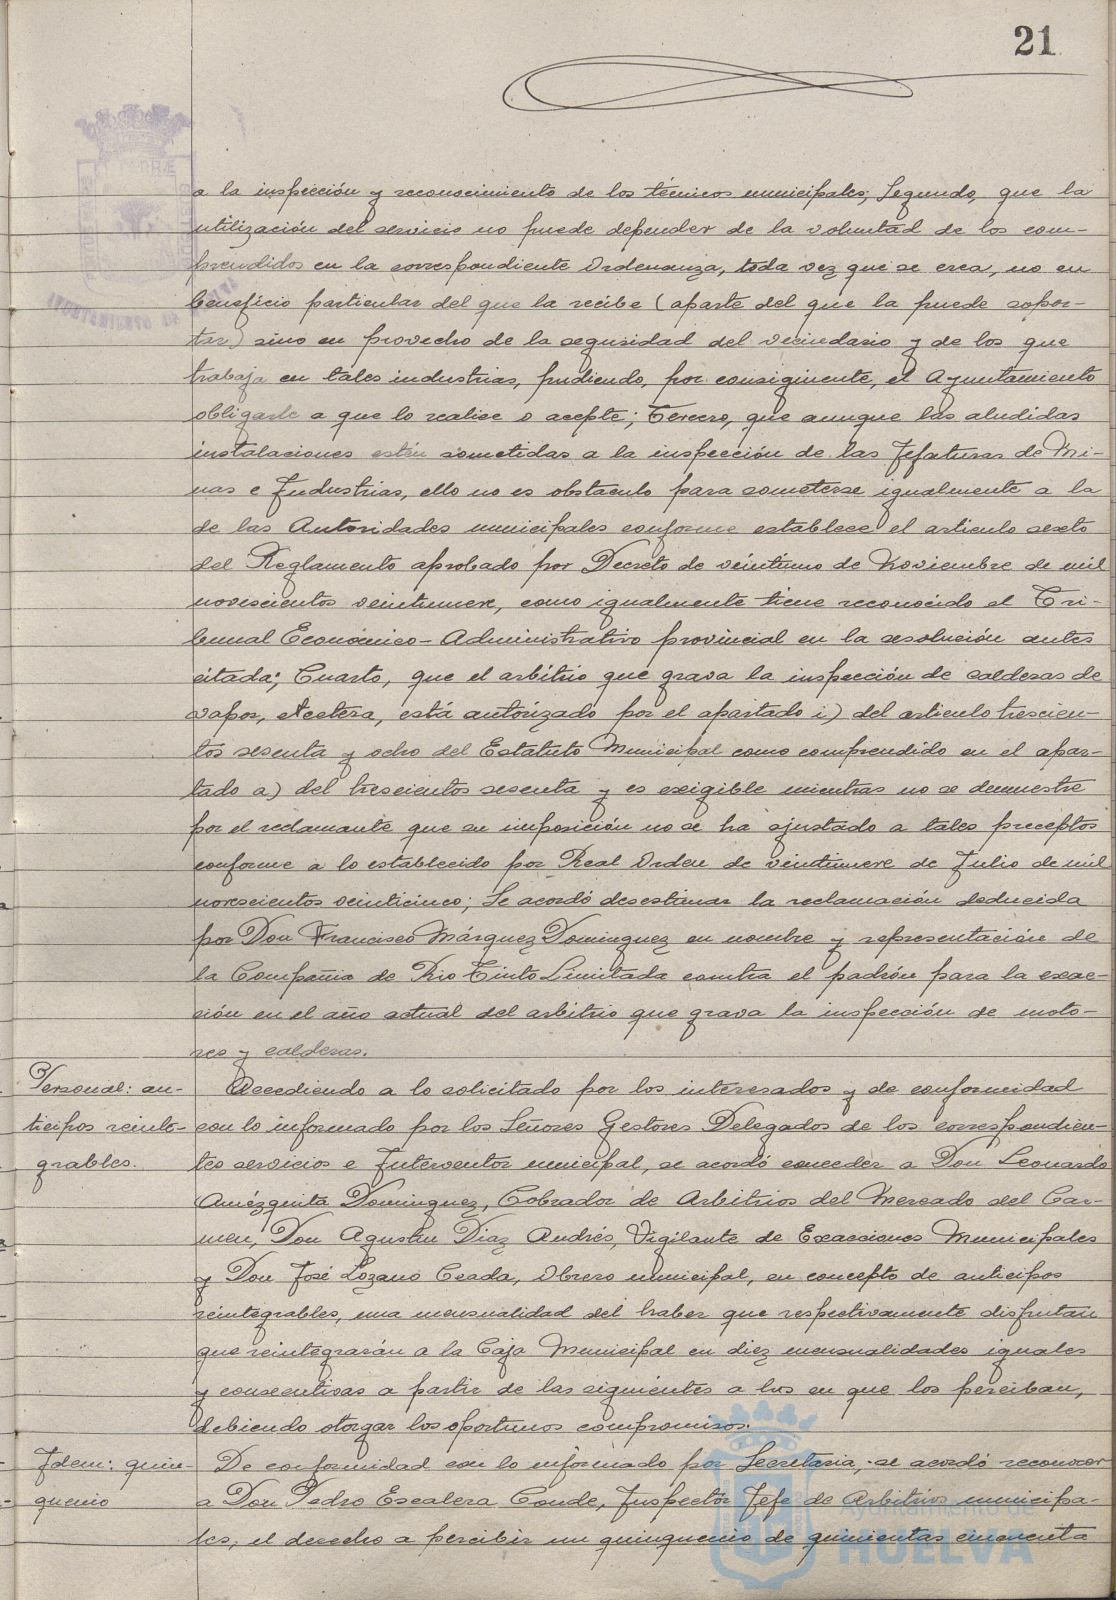 21
a la inspección y reconocimiento de los técnicos municipales; Segundo, que la
utilización del servicio no puede depender de la voluntad de los com-
prendidos en la correspondiente Ordenanza, toda vez que se crea, no en
beneficio particular del que la recibe (aparte del que la puede sopor-
tar) sino en provecho de la seguridad del vecindario y de los que
trabaja en tales industrias, pudiendo, por consiguiente, el Ayuntamiento
obligarle a que lo realice o acepte; Tercero, que aunque las aludidas
instalaciones estén sometidas a la inspección de las Jefaturas de Mi-
nas e Industrias, ello no es obstaculo para someterse igualmente a la
de las Autoridades municipales conforme establece el articulo sexto
del Reglamento aprobado por Decreto de veintiuno de Noviembre de mil
novecientos veintinueve, como igualmente tiene reconocido el Tri-
bunal Económico-Administrativo provincial en la resolución antes
citada; Cuarto, que el arbitrio que grava la inspección de calderas de
vapor, etcétera, está autorizado por el apartado i) del articulo trescien-
tos sesenta y ocho del Estatuto Municipal como comprendido en el apar-
tado a) del trescientos sesenta y es exigible mientras no se demuestre
por el reclamante que su imposición no se ha ajustado a tales preceptos
conforme a lo establecido por Real Orden de veintinueve de Julio de mil
novecientos veinticinco; Se acordó desestimar la reclamación deducida
por Don Francisco Márquez Dominguez en nombre y representación de
la Compañia de Rio Tinto Limitada contra el padrón para la exac-
ción en el año actual del arbitrio que grava la inspección de moto-
res y calderas.
Personal: an-
ticipos reinte-
grables.
Accediendo a lo solicitado por los interesados y de conformidad
con lo informado por los Señores Gestores Delegados de los correspondien-
tes servicios e Interventor municipal, se acordó conceder a Don Leonardo
Amézquita Dominguez, Cobrador de Arbitrios del Mercado del Car-
men, Don Agustin Diaz Andrés, Vigilante de Exacciones Municipales
y Don José Lozano Ceada, Obrero municipal, en concepto de anticipos
reintegrables, una mensualidad del haber que respectivamente disfrutan
que reintegrarán a la Caja Municipal en diez mensualidades iguales
y consecutivas a partir de las siguientes a los en que los perciban,
debiendo otorgar los oportunos compromisos.
Idem: quin-
quenio
De conformidad con lo informado por Secretaria, se acordó reconocer
a Don Pedro Escalera Conde, Inspector Jefe de Arbitrios municipa-
les, el derecho a percibir un quinquenio de quinientas cincuenta
Ayuntamiento de
HUELVA